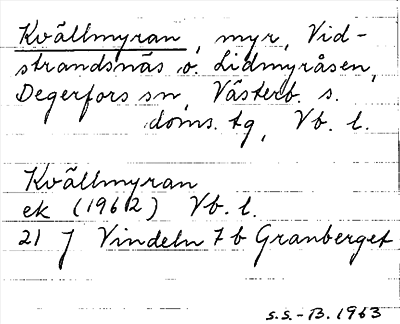 Kvällmyran, myr, Vid-
strandsnäs o. Lidmyråsen,
Degerfors sn, Västerb. s.
doms. tg, Vb. l.
Kvällmyran
ek (1962) Vb. l.
21 J Vindeln 7b Granberget
S.S.-B. 1963